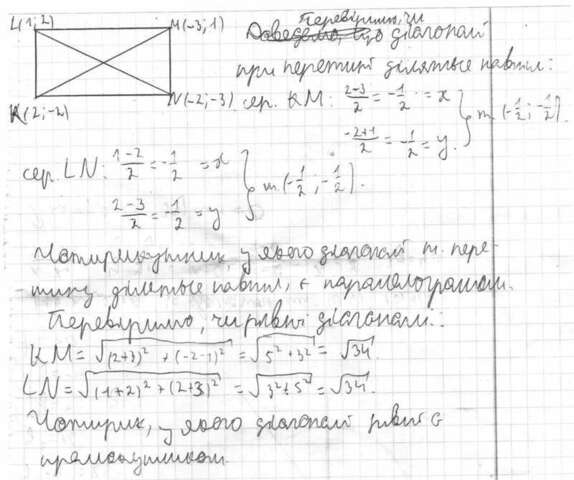 L(1;2) M(-3;1)
K(2;-2) N(-2;-3)
Перевіримо, чи
діагоналі
при перетині діляться навпіл:
сер. KM: (2-3)/2 = -1/2 = x
(-2+1)/2 = -1/2 = y. } m (-1/2; -1/2).
сер. LN: (1-2)/2 = -1/2 = x
(2-3)/2 = -1/2 = y } m (-1/2; -1/2).
Чотирикутник, у якого діагоналі т. пере-
тину діляться навпіл, є паралелограмом.
Перевіримо, чи рівні діагоналі:
KM = √((2+3)² + (-2-1)²) = √(5² + 3²) = √34.
LN = √((1+2)² + (2+3)²) = √(3² + 5²) = √34.
Чотирик, у якого діагоналі рівні є
прямокутником.